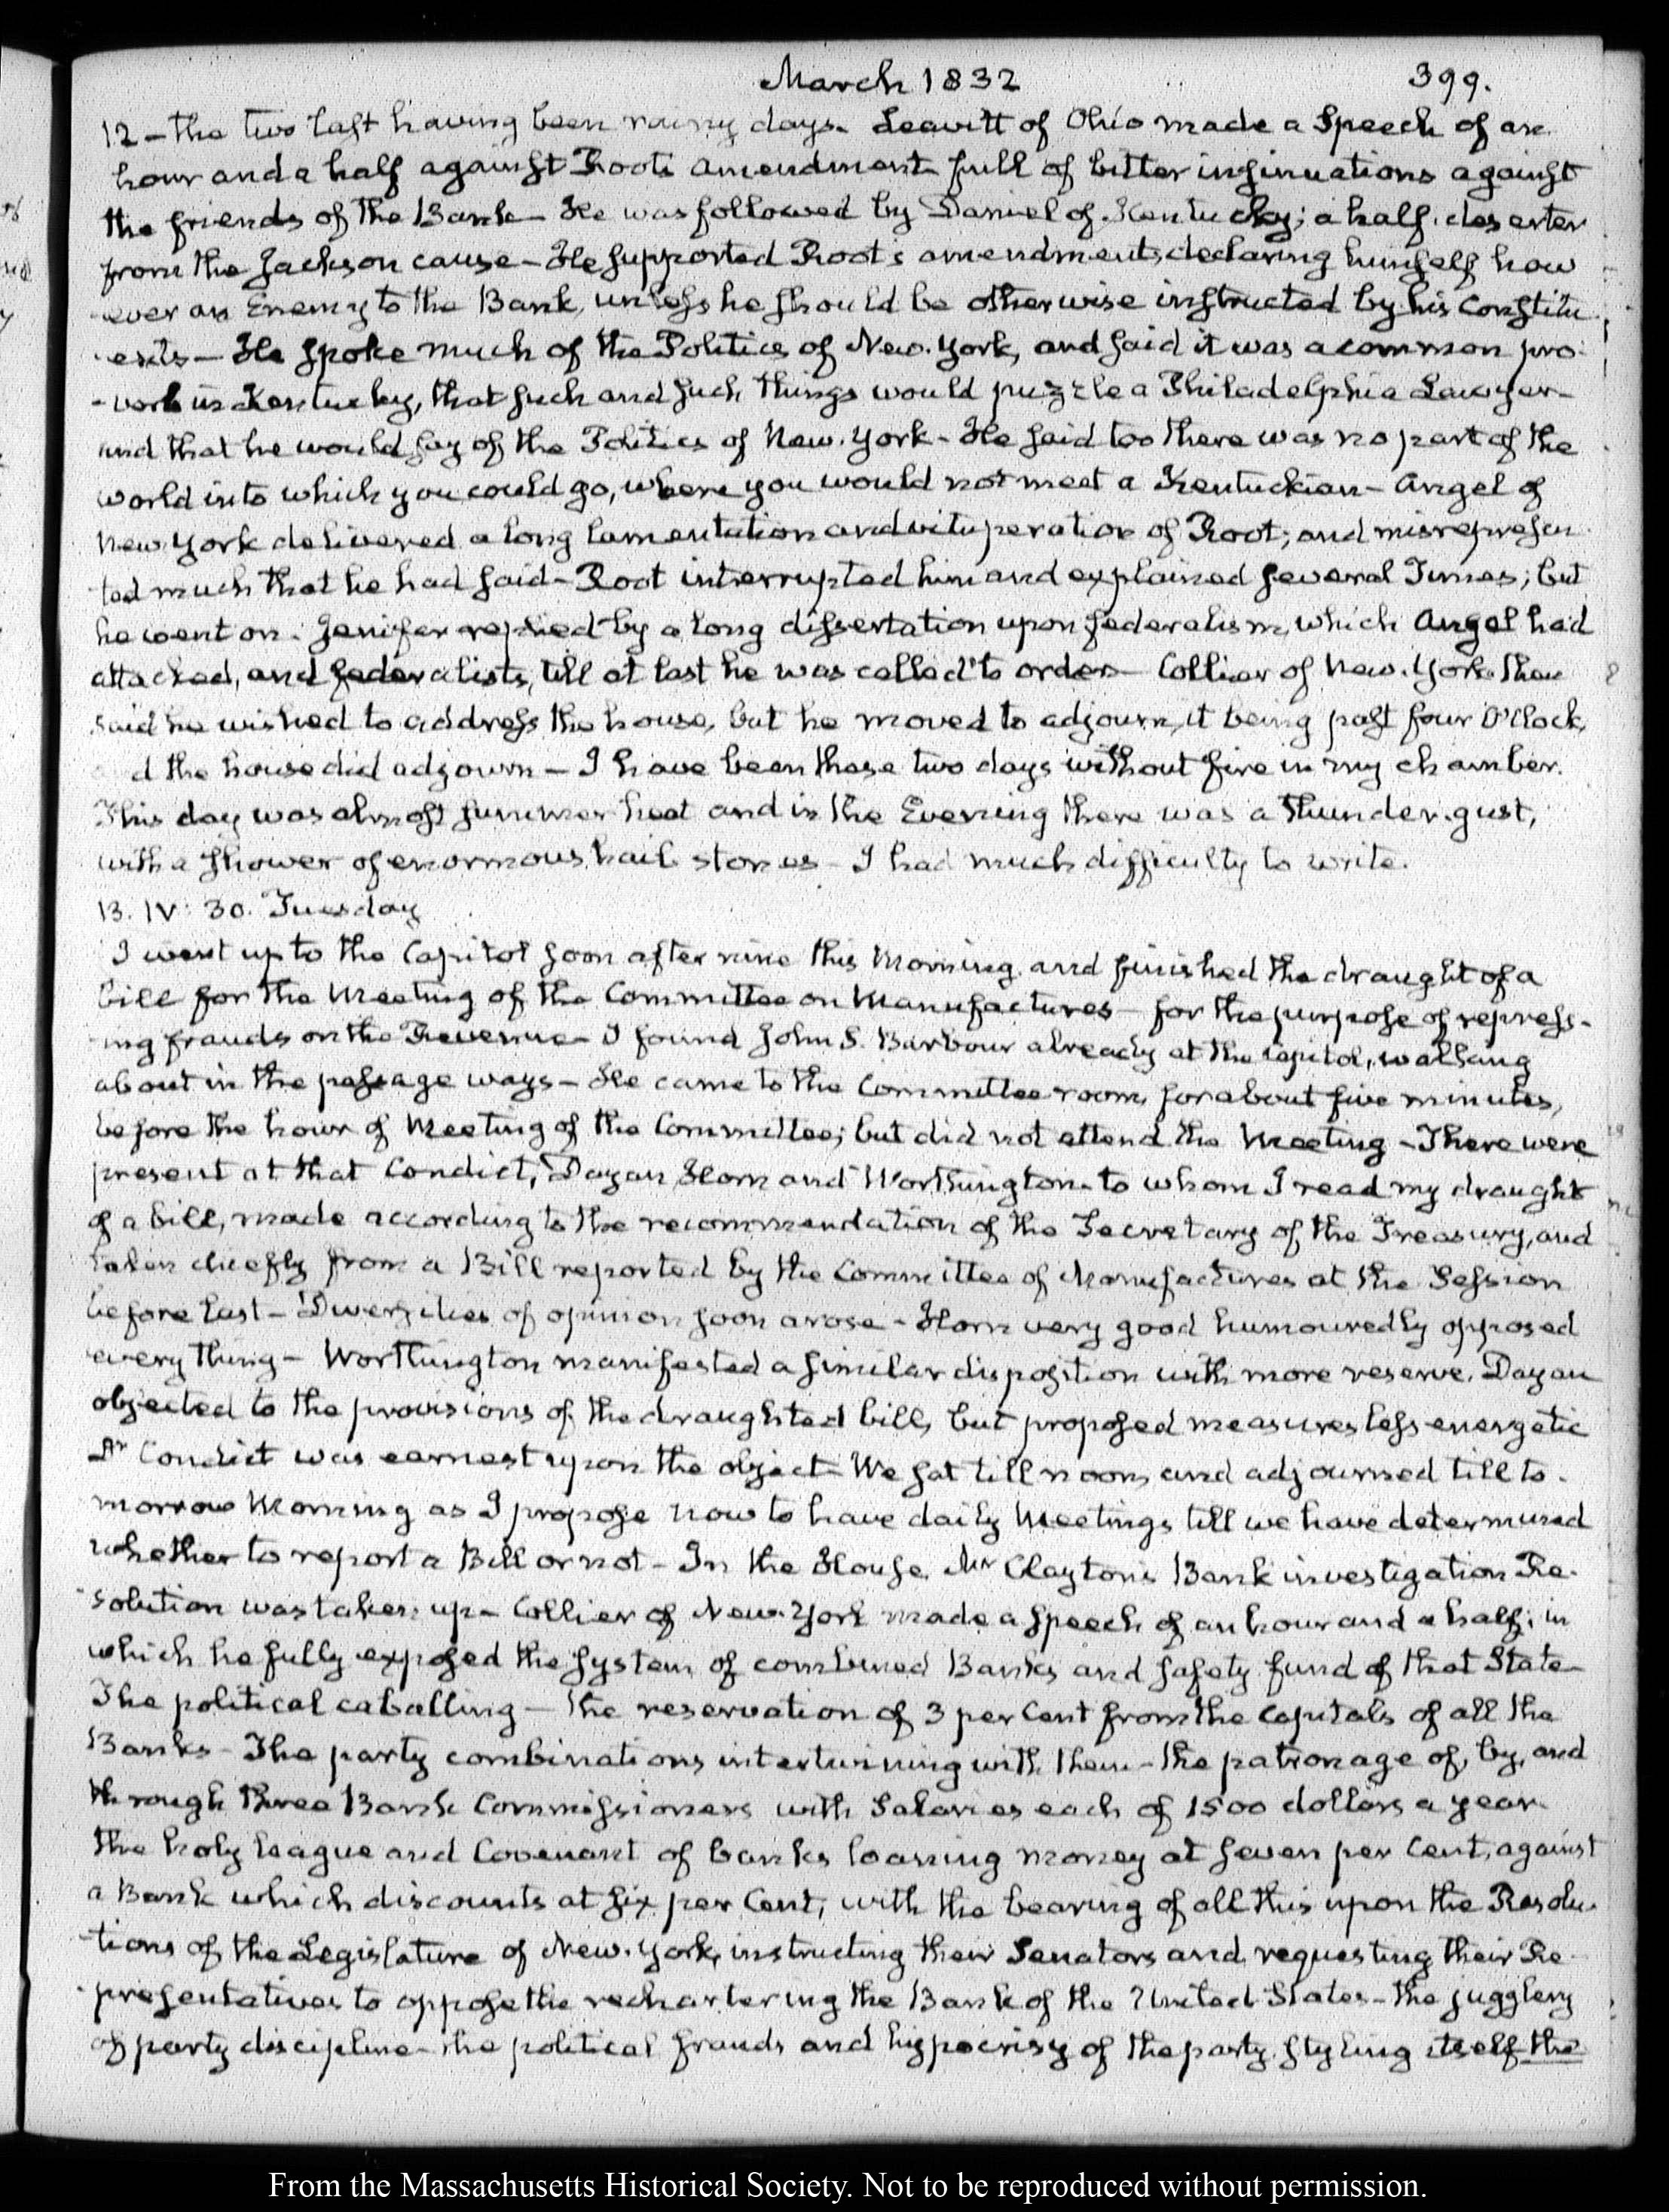 March 1832 399.
12 – the two last having been rainy days – Leavitt of Ohio made a Speech of an
hour and a half against Root's amendment full of bitter insinuations against
the friends of the Bank – He was followed by Daniel of Kentucky; a half. deserter
from the Jackson cause – He supported Root's amendments, declaring himself how
ever an Enemy to the Bank, unless he should be otherwise instructed by his Constitu
ents – He spoke much of the Politics of New. York, and said it was a common pro-
-verb in Kentucky, that such and such things would puzzle a Philadelphia Lawyer –
and that he would say of the Politics of New. York – He said too there was no part of the
world into which you could go, where you would not meet a Kentuckian – Angel of
New. York delivered a long lamentation and vituperation of Root; and misrepresen
ted much that he had said – Root interrupted him and explained several Times; but
he went on. Jenifer replied by a long dissertation upon federalism, which Angel had
attacked, and federalists, till at last he was called to order – Collier of New. York then
said he wished to address the house, but he moved to adjourn, it being past four O'Clock,
d the house did adjourn – I have been these two days without fire in my chamber.
This day was almost summer heat and in the Evening there was a thunder. gust,
with a shower of enormous hail stones – I had much difficulty to write.
13. IV: 30. Tuesday
I went up to the Capitol soon after nine this Morning, and finished the draught of a
bill for the Meeting of the Committee on Manufactures – for the purpose of repress-
ing frauds on the Revenue – I found John S. Barbour already at the Capitol, walking
about in the passage ways – He came to the Committee room, for about five minutes,
before the hour of Meeting of the Committee; but did not attend the Meeting – There were
present at that Condict, Dayan, Horn and Worthington – to whom I read my draught
of a bill, made according to the recommendation of the Secretary of the Treasury, and
taken chiefly from a Bill reported by the Committee of Manufactures at the Session
before last – Diversities of opinion soon arose – Horn very good humouredly opposed
every thing – Worthington manifested a similar disposition with more reserve. Dayan
objected to the provisions of the draughted bill, but proposed measures less energetic
Dr Condict was earnest upon the object – We sat till noon, and adjourned till to-
morrow Morning as I propose now to have daily Meetings till we have determined
whether to report a Bill or not – In the House Mr Clayton's Bank investigation Re-
solution was taken up – Collier of New. York made a speech of an hour and a half; in
which he fully exposed the system of combined Banks and safety fund of that State –
The political caballing – the reservation of 3 per Cent from the Capitals of all the
Banks – The party combinations intertwining with them – the patronage of, by, and
through three Bank Commissioners with Salaries each of 1500 dollars a year
the holy league and Covenant of banks loaning money at seven per Cent, against
a Bank which discounts at six per Cent, with the bearing of all this upon the Resolu-
tions of the Legislature of New. York, instructing their Senators and requesting their Re-
presentatives to oppose the rechartering the Bank of the United States – the jugglery
of party discipline – the political frauds and hypocrisy of the party styling itself the
From the Massachusetts Historical Society. Not to be reproduced without permission.